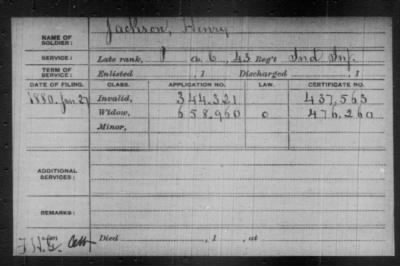 Jackson, Henry
NAME OF SOLDIER:
SERVICE: Late rank, P Co. G, 43 Reg't Ind Inf.
TERM OF SERVICE: Enlisted , 1 Discharged , 1
DATE OF FILING. CLASS. APPLICATION NO. LAW. CERTIFICATE NO.
1880. Jan. 27 Invalid, 344.321 437,563
Widow, 658,960 476.260
Minor,
ADDITIONAL SERVICES:
REMARKS:
Died , 1 , at